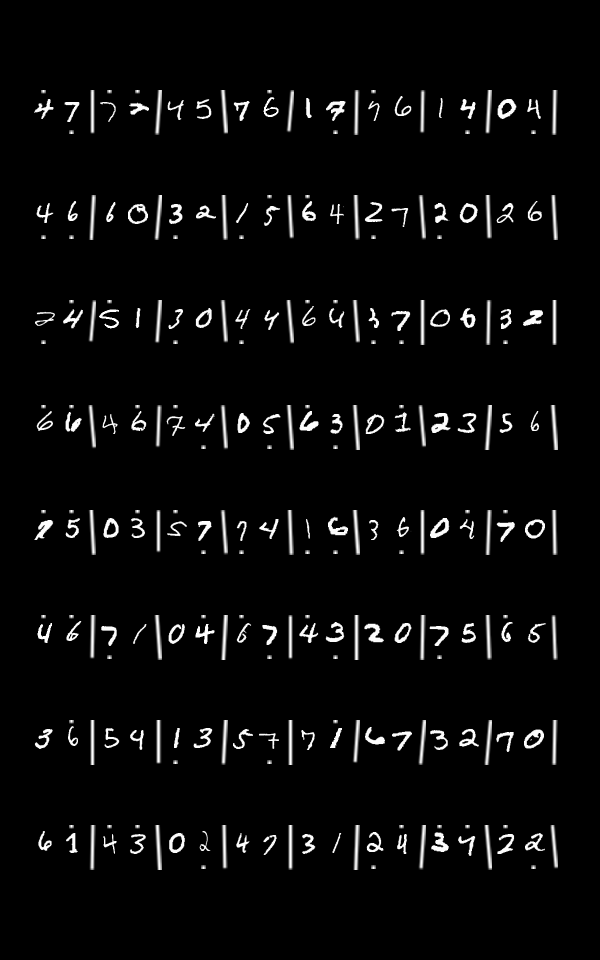 4 7 | 7 2 | 4 5 | 7 6 | 1 7 | 7 6 | 1 4 | 0 4 |
4 6 | 6 0 | 3 2 | 1 5 | 6 4 | 2 7 | 2 0 | 2 6 |
2 4 | 5 1 | 3 0 | 4 4 | 6 4 | 3 7 | 0 6 | 3 2 |
6 6 | 4 6 | 7 4 | 0 5 | 6 3 | 0 1 | 2 3 | 5 6 |
2 5 | 0 3 | 5 7 | 7 4 | 1 6 | 3 6 | 0 4 | 7 0 |
4 6 | 7 1 | 0 4 | 6 7 | 4 3 | 2 0 | 7 5 | 6 5 |
3 6 | 5 4 | 1 3 | 5 7 | 7 1 | 6 7 | 3 2 | 7 0 |
6 1 | 4 3 | 0 2 | 4 7 | 3 1 | 2 4 | 3 4 | 2 2 |